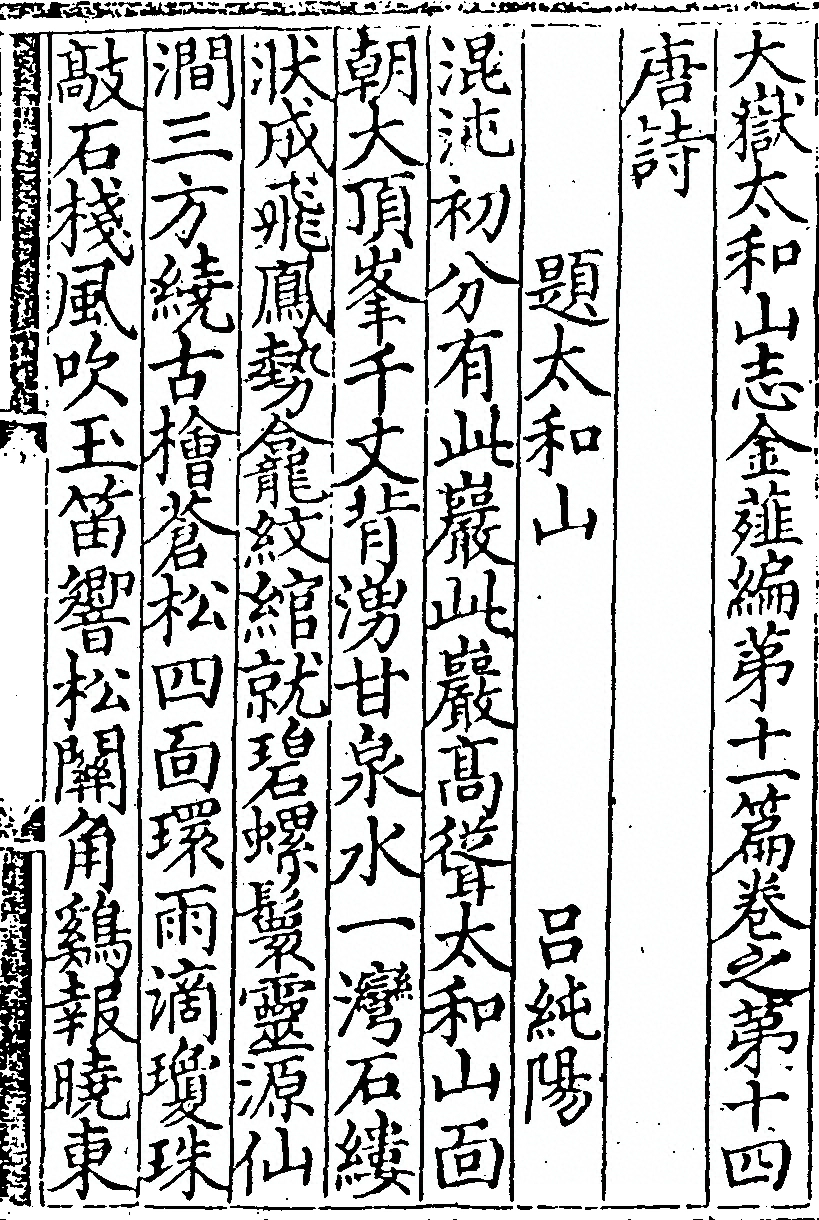 大嶽太和山志金薤編第十一篇卷之第十四
唐詩
題太和山 吕純陽
混沌初分有此巖此巖髙聳太和山面
朝大頂峯千丈背湧甘泉水一灣石縷
狀成飛鳳勢龕紋綰就碧螺鬟靈源仙
澗三方繞古檜蒼松四面環雨滴瓊珠
敲石棧風吹玉笛響松關角鷄報曉東